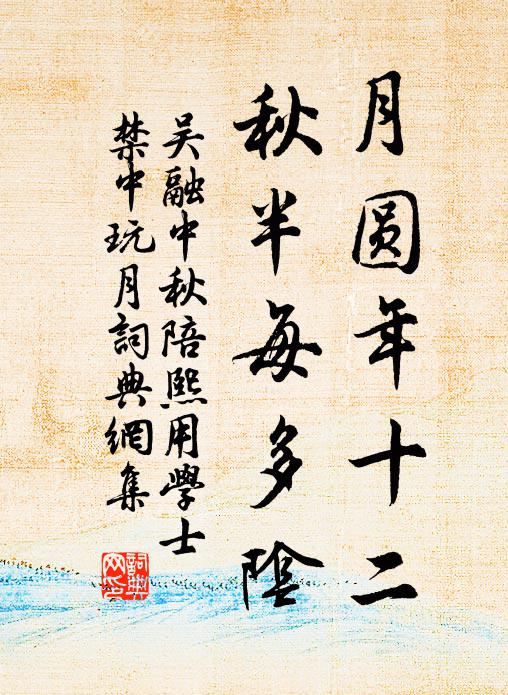 月圆年十二
秋半每多陰
吴融中秋陪熙用學士
禁中玩月詞典網集
詞典
网印